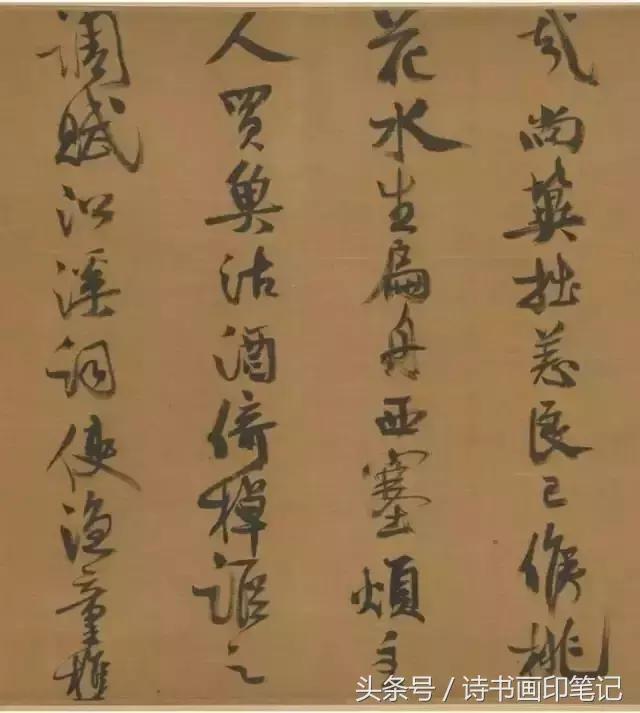 哉尚冀拙恙良已候桃
花水生扁舟西塞煩主
人買魚沽酒倚棹謳之
調賦沿溪詞使漁童樵
头条号 / 诗书画印笔记